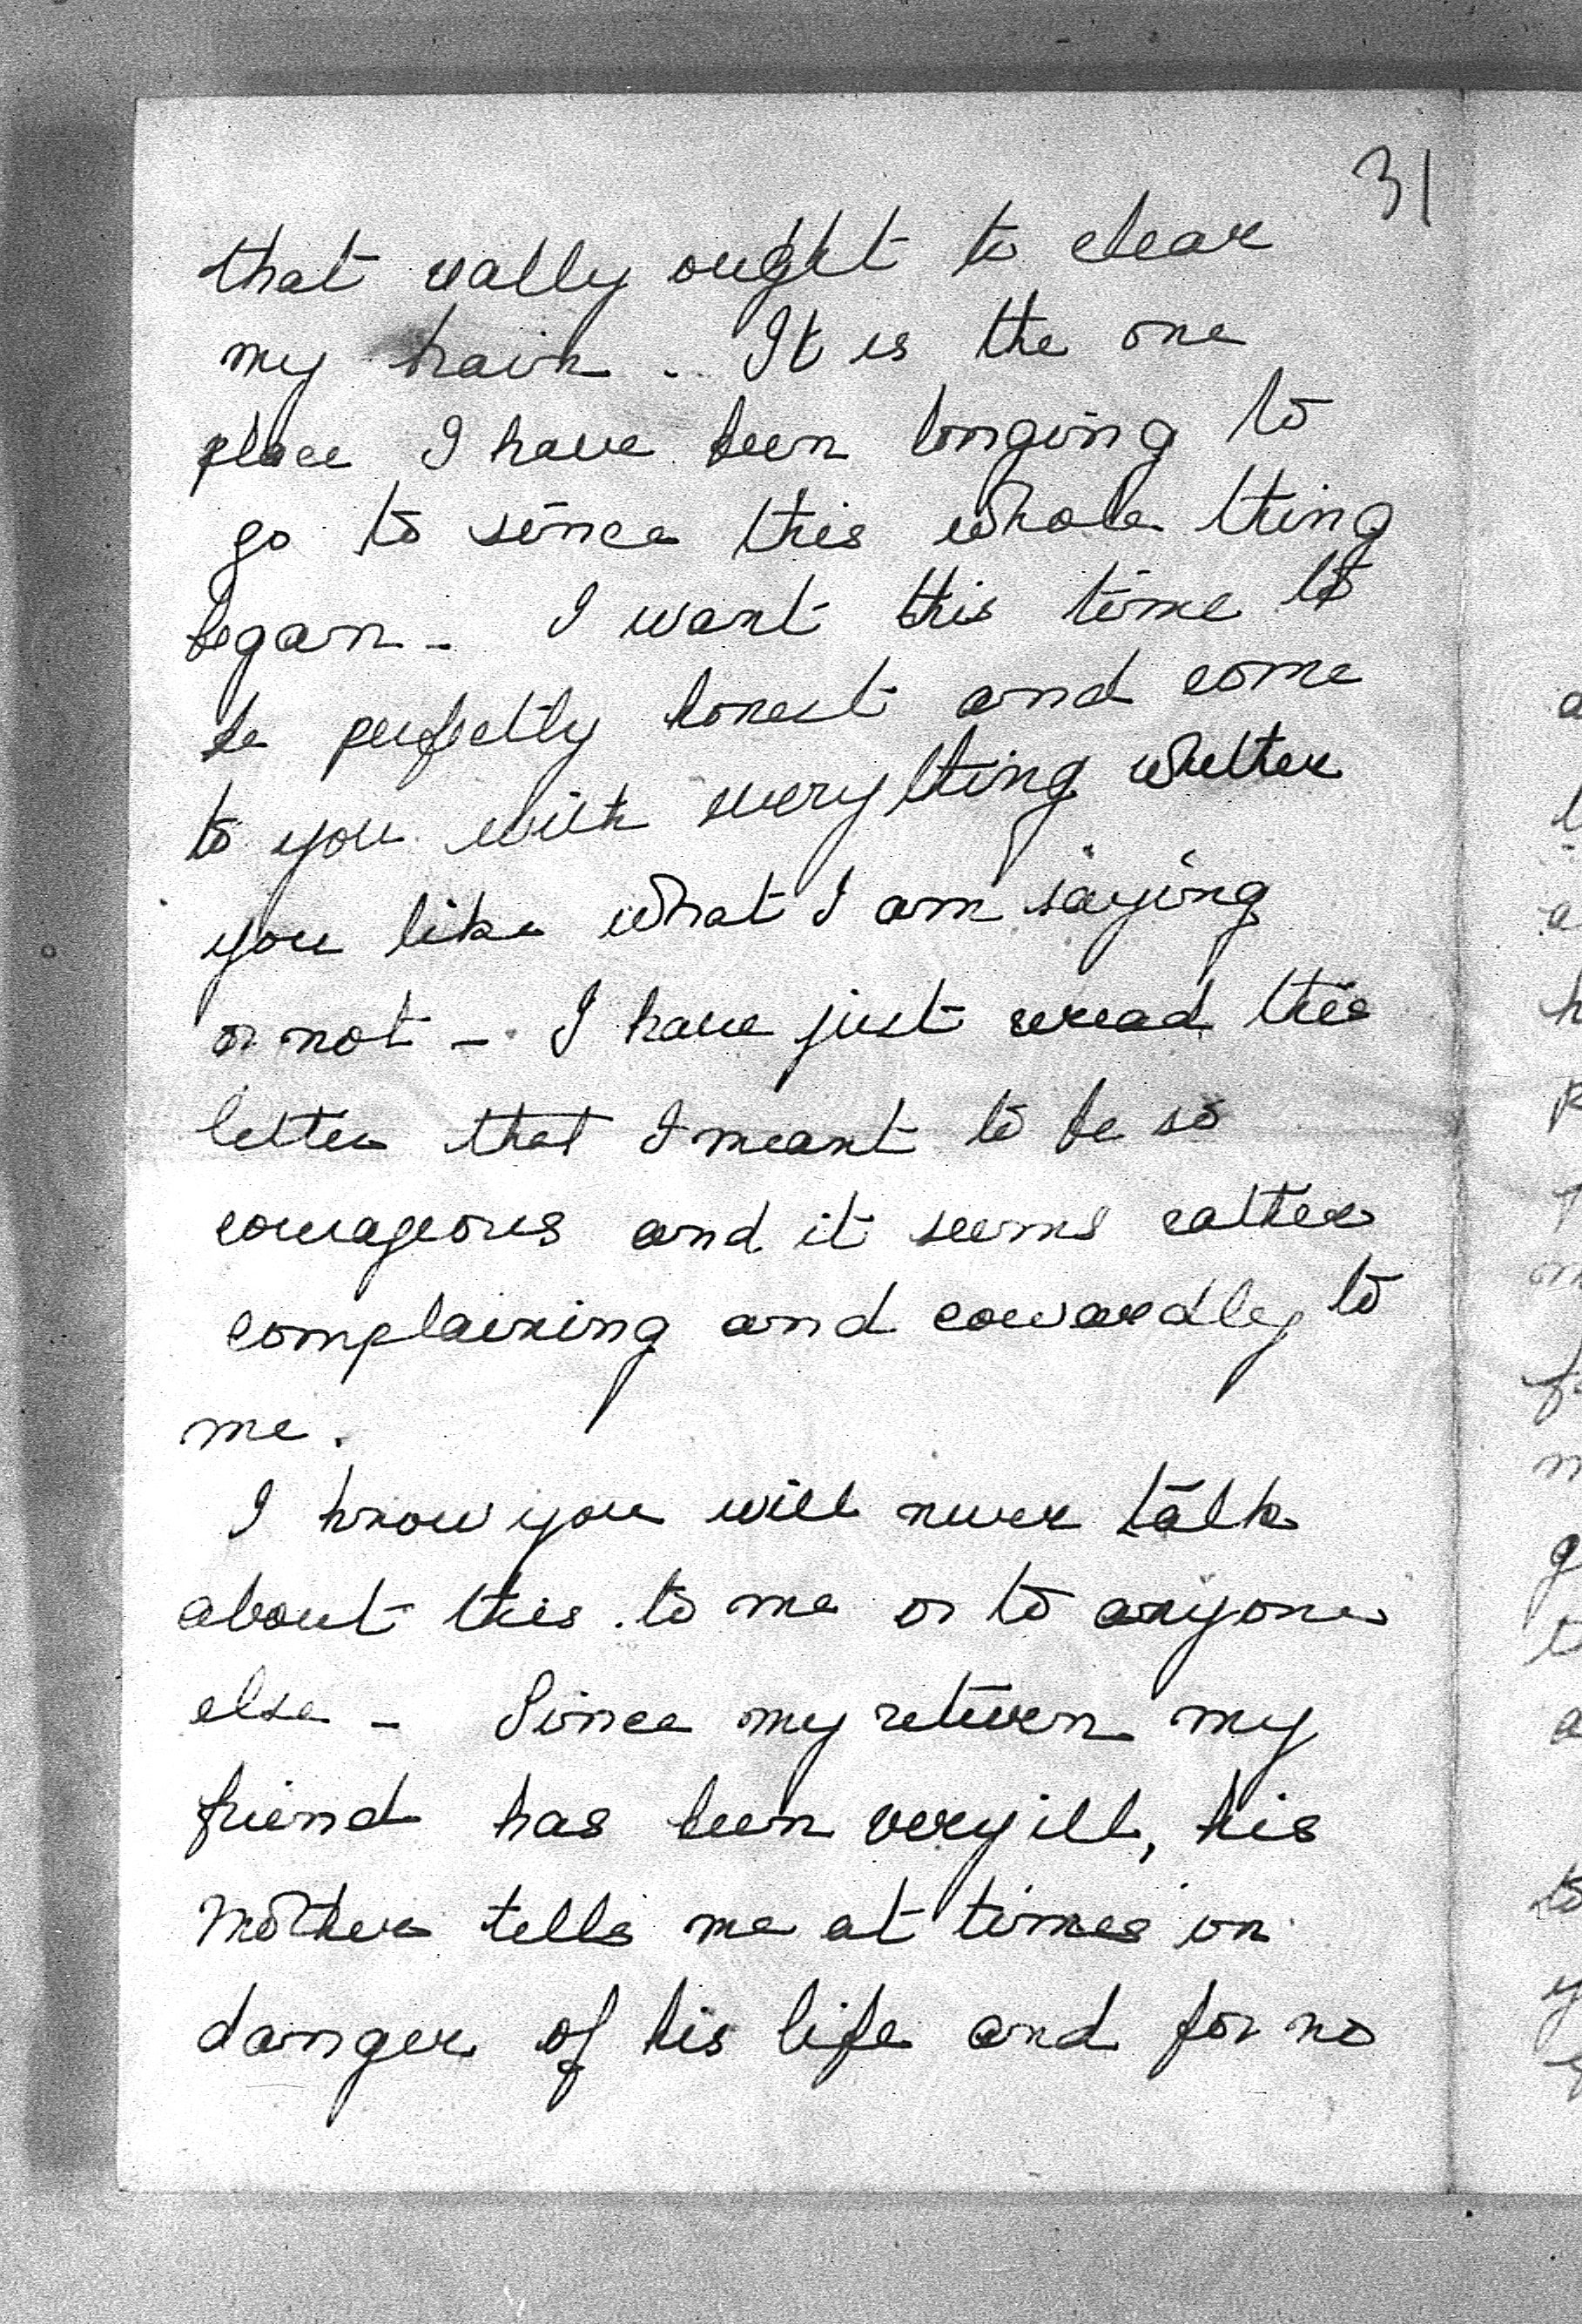 31
that really ought to clear
my brain. It is the one
place I have been longing to
go to since this whole thing
began - I want this time to
be perfectly honest and come
to you with everything whether
you like what I am saying
or not - I have just reread this
letter that I meant to be so
courageous and it seems rather
complaining and cowardly to
me.
I know you will never talk
about this to me or to anyone
else - Since my return my
friend has been very ill, his
mother tells me at times in
danger of his life and for no